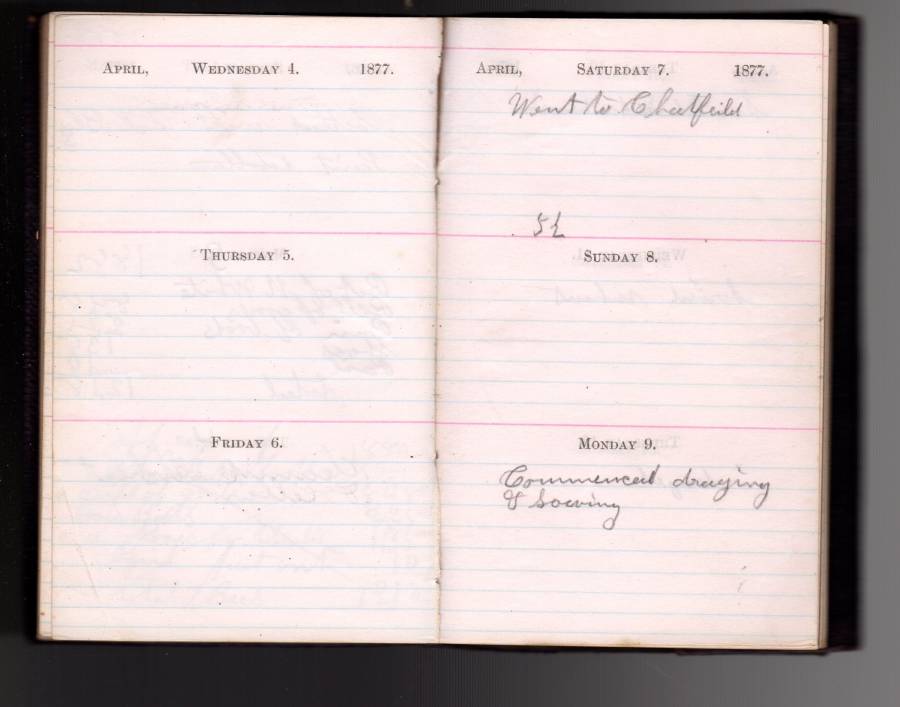 APRIL, WEDNESDAY 4. 1877.
THURSDAY 5.
FRIDAY 6.
APRIL, SATURDAY 7. 1877.
Went to Chatfeild
SUNDAY 8.
MONDAY 9.
Commenced draging
& sowing